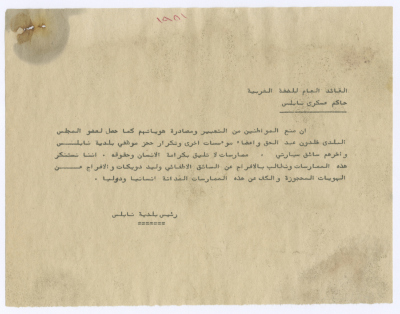 ١٩٨١
القائد العام للضفة الغربية
حاكم عسكري نابلس
ان منع المواطنين من التعبير ومصادرة هوياتهم كما حصل لعضو المجلس
البلدي خلدون عبد الحق واعضاء مؤسسات اخرى وتكرار حجز موظفي بلدية نابلـــس
واخرهم سائق سيارتي . ممارسات لا تليق بكرامة الانسان وحقوقه . اننا نستنكر
هذه الممارسات ونطالب بالافراج عن السائق الاطفائي وليد دويكات والافراج عـــن
الهويات المحجوزة والكف عن هذه الممارسات انسانيا ودوليا .
رئيس بلدية نابلس